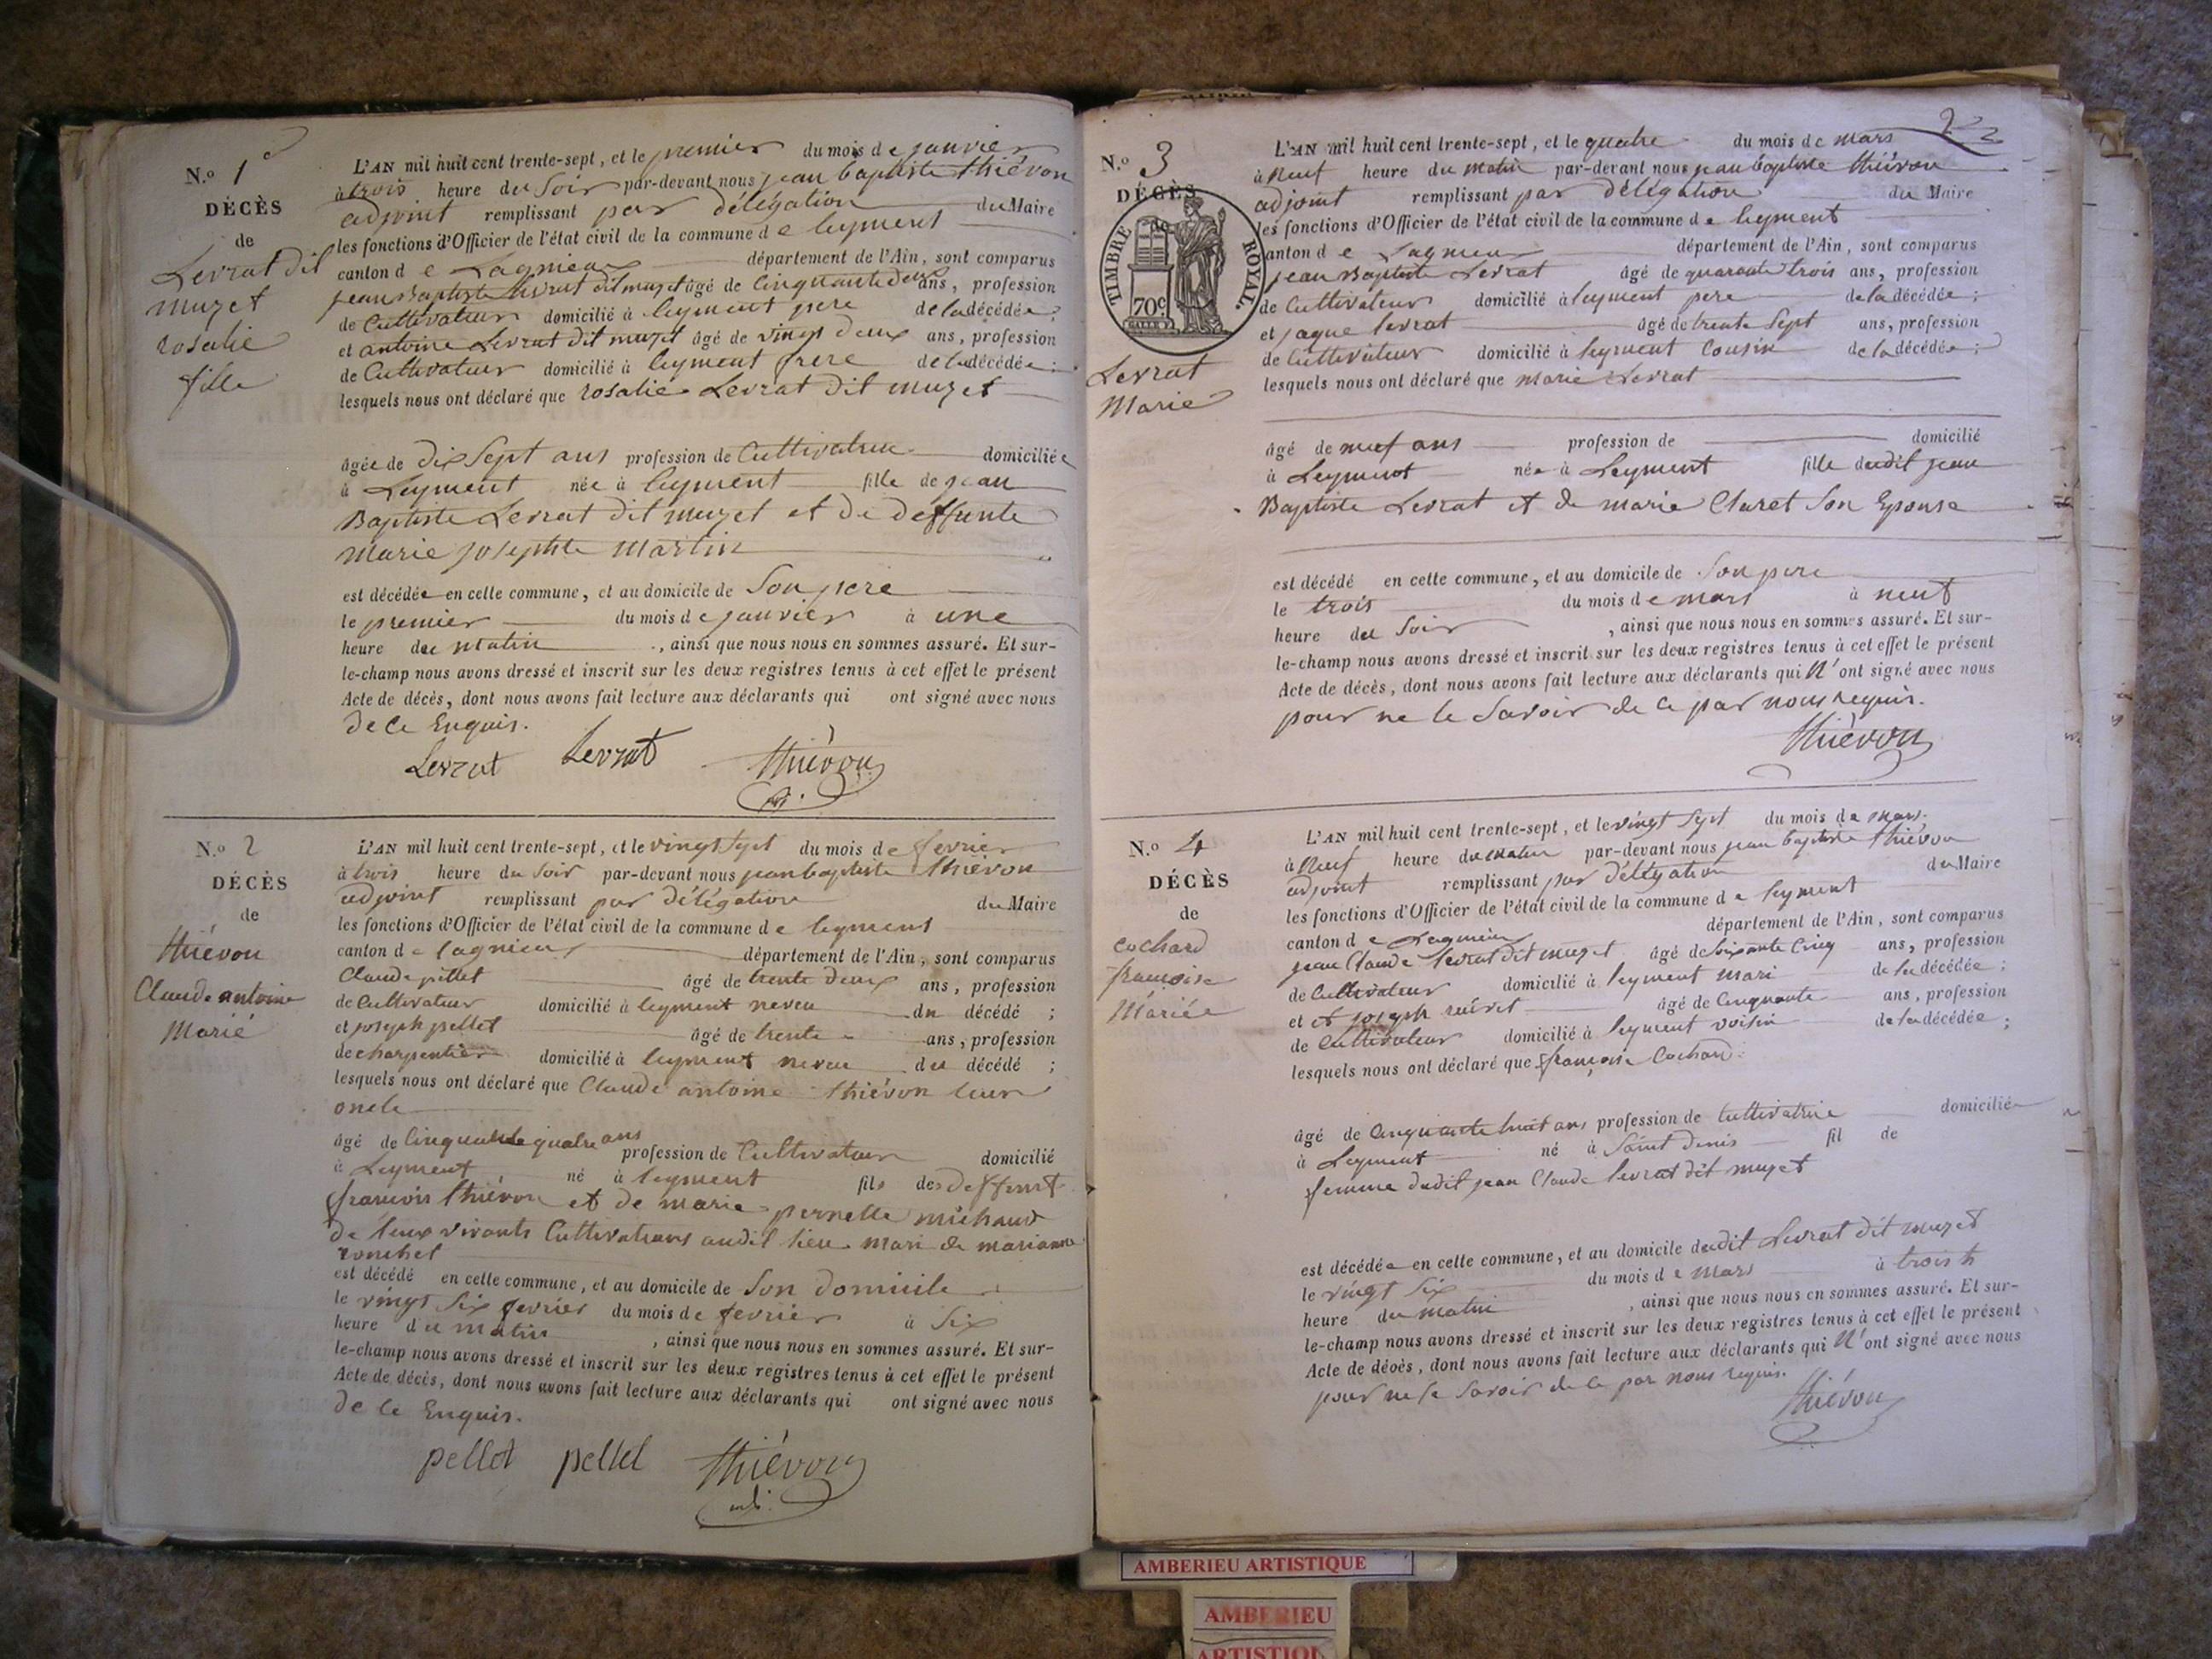 N.o 1
DÉCÈS
de
Levrat dit
muzet
rosalie
fille
L'AN mil huit cent trente-sept, et le premier du mois de janvier
à trois heure du Soir par-devant nous jean baptiste thiévon
adjoint remplissant par délégation du Maire
les fonctions d'Officier de l'état civil de la commune de leyment
canton de Lagnieu département de l'Ain, sont comparus
jean Baptiste Levrat dit muzet âgé de Cinquante deux ans, profession
de Cultivateur domicilié à leyment pere de la décédée;
et antoine Levrat dit muzet âgé de vingt deux ans, profession
de Cultivateur domicilié à leyment frere de la décédée;
lesquels nous ont déclaré que rosalie Levrat dit muzet
âgée de dix Sept ans profession de Cultivatrice domiciliée
à Leyment née à leyment fille de jean
Baptiste Levrat dit muzet et de deffunte
Marie josephte Martin
est décédée en cette commune, et au domicile de Son pere
le premier du mois de janvier à une
heure du matin, ainsi que nous nous en sommes assuré. Et sur-
le-champ nous avons dressé et inscrit sur les deux registres tenus à cet effet le présent
Acte de décès, dont nous avons fait lecture aux déclarants qui ont signé avec nous
de ce Enquis.
Levrat Levrat thiévon
adj.
N.o 2
DÉCÈS
de
thiévon
Claude antoine
Marié
L'AN mil huit cent trente-sept, et le vingt Sept du mois de fevrier
à trois heure du Soir par-devant nous jean baptiste thiévon
adjoint remplissant par délégation du Maire
les fonctions d'Officier de l'état civil de la commune de leyment
canton de lagnieu département de l'Ain, sont comparus
Claude pellet âgé de trente deux ans, profession
de Cultivateur domicilié à leyment neveu du décédé;
et joseph pellet âgé de trente ans, profession
de charpentier domicilié à leyment neveu du décédé;
lesquels nous ont déclaré que Claude antoine thiévon leur
oncle
âgé de Cinquante quatre ans profession de Cultivateur domicilié
à Leyment né à leyment fils des deffunt
francois thiévon et de marie pernelle michaud
de leur vivants Cultivateurs audit lieu mari de marianne
ronchet
est décédé en cette commune, et au domicile de Son domicile
le vingt Six fevrier du mois de fevrier à Six
heure du matin, ainsi que nous nous en sommes assuré. Et sur-
le-champ nous avons dressé et inscrit sur les deux registres tenus à cet effet le présent
Acte de décès, dont nous avons fait lecture aux déclarants qui ont signé avec nous
de ce Enquis.
pellet pellet thiévon
adj.
2
N.o 3
DÉCÈS
de
TIMBRE ROYAL
70c
Levrat
Marie
L'AN mil huit cent trente-sept, et le quatre du mois de mars
à neuf heure du matin par-devant nous jean baptiste thiévon
adjoint remplissant par délégation du Maire
les fonctions d'Officier de l'état civil de la commune de leyment
canton de Lagnieu département de l'Ain, sont comparus
jean Baptiste Levrat âgé de quarante trois ans, profession
de Cultivateur domicilié à leyment pere de la décédée;
et jaque levrat âgé de trente Sept ans, profession
de Cultivateur domicilié à leyment Cousin de la décédée;
lesquels nous ont déclaré que marie Levrat
âgé de neuf ans profession de domicilié
à Leyment née à Leyment fille dudit jean
Baptiste Levrat et de marie Claret Son Epouse
est décédé en cette commune, et au domicile de Son pere
le trois du mois de mars à neuf
heure du Soir, ainsi que nous nous en sommes assuré. Et sur-
le-champ nous avons dressé et inscrit sur les deux registres tenus à cet effet le présent
Acte de décès, dont nous avons fait lecture aux déclarants qui N'ont signé avec nous
pour ne le Savoir de ce par nous requis.
thiévon
N.o 4
DÉCÈS
de
cochard
francoise
Mariée
L'AN mil huit cent trente-sept, et le vingt Sept du mois de mars
à neuf heure du matin par-devant nous jean baptiste thiévon
adjoint remplissant par délégation du Maire
les fonctions d'Officier de l'état civil de la commune de leyment
canton de Lagnieu département de l'Ain, sont comparus
jean Claude levrat dit muzet âgé de Soixante Cinq ans, profession
de Cultivateur domicilié à leyment mari de la décédée;
et et joseph âgé de Cinquante ans, profession
de Cultivateur domicilié à leyment voisin de la décédée;
lesquels nous ont déclaré que françoise Cochard
âgé de Cinquante huit ans profession de Cultivatrice domiciliée
à Leyment né à Saint denis fil de
femme dudit jean Claude levrat dit muzet
est décédée en cette commune, et au domicile dudit Levrat dit muzet
le vingt Six du mois de mars à trois h
heure du matin, ainsi que nous nous en sommes assuré. Et sur-
le-champ nous avons dressé et inscrit sur les deux registres tenus à cet effet le présent
Acte de décès, dont nous avons fait lecture aux déclarants qui N'ont signé avec nous
pour ne le Savoir de ce par nous requis.
thiévon
AMBERIEU ARTISTIQUE
AMBERIEU
ARTISTIQ